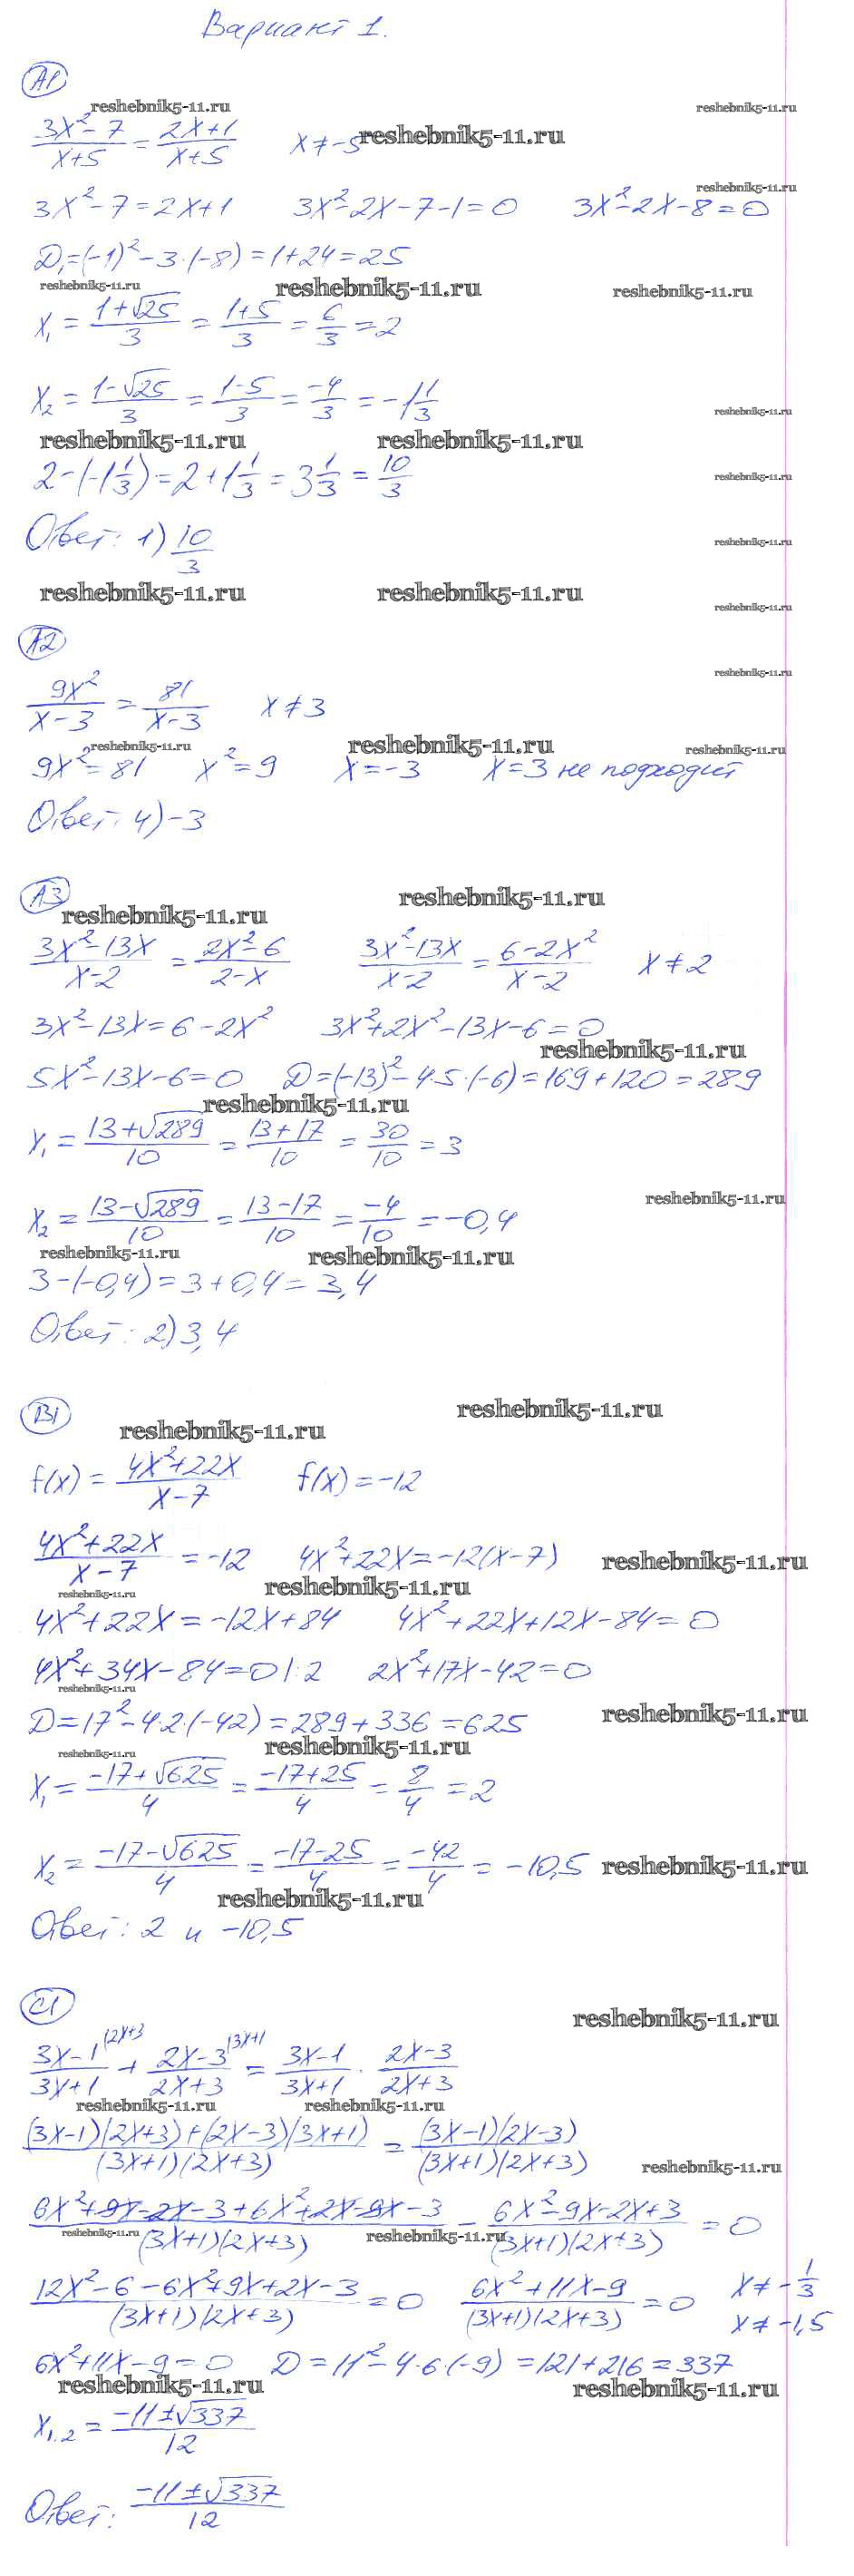 Вариант 1.
А1
reshebnik5-11.ru reshebnik5-11.ru
(3x²-7)/(x+5) = (2x+1)/(x+5) x≠-5 reshebnik5-11.ru
reshebnik5-11.ru
3x²-7=2x+1 3x²-2x-7-1=0 3x²-2x-8=0
D₁=(-1)²-3·(-8)=1+24=25
reshebnik5-11.ru reshebnik5-11.ru reshebnik5-11.ru
x₁ = (1+√25)/3 = (1+5)/3 = 6/3 = 2
x₂ = (1-√25)/3 = (1-5)/3 = -4/3 = -1 1/3
reshebnik5-11.ru
reshebnik5-11.ru reshebnik5-11.ru
2-(-1 1/3) = 2+1 1/3 = 3 1/3 = 10/3
reshebnik5-11.ru
Ответ: 1) 10/3
reshebnik5-11.ru
reshebnik5-11.ru reshebnik5-11.ru
reshebnik5-11.ru
А2
reshebnik5-11.ru
9x²/(x-3) = 81/(x-3) x≠3
reshebnik5-11.ru reshebnik5-11.ru reshebnik5-11.ru
9x²=81 x²=9 x=-3 x=3 не подходит
Ответ: 4) -3
А3
reshebnik5-11.ru
reshebnik5-11.ru
(3x²-13x)/(x-2) = (2x²-6)/(2-x) (3x²-13x)/(x-2) = (6-2x²)/(x-2) x≠2
3x²-13x=6-2x² 3x²+2x²-13x-6=0
reshebnik5-11.ru
5x²-13x-6=0 D=(-13)²-4·5·(-6)=169+120=289
reshebnik5-11.ru
x₁ = (13+√289)/10 = (13+17)/10 = 30/10 = 3
reshebnik5-11.ru
x₂ = (13-√289)/10 = (13-17)/10 = -4/10 = -0,4
reshebnik5-11.ru reshebnik5-11.ru
3-(-0,4)=3+0,4=3,4
Ответ: 2) 3,4
В1
reshebnik5-11.ru
reshebnik5-11.ru
f(x) = (4x²+22x)/(x-7) f(x)=-12
(4x²+22x)/(x-7) = -12 4x²+22x=-12(x-7) reshebnik5-11.ru
reshebnik5-11.ru reshebnik5-11.ru
4x²+22x=-12x+84 4x²+22x+12x-84=0
4x²+34x-84=0 |:2 2x²+17x-42=0
reshebnik5-11.ru
D=17²-4·2·(-42)=289+336=625 reshebnik5-11.ru
reshebnik5-11.ru reshebnik5-11.ru
x₁ = (-17+√625)/4 = (-17+25)/4 = 8/4 = 2
x₂ = (-17-√625)/4 = (-17-25)/4 = -42/4 = -10,5 reshebnik5-11.ru
reshebnik5-11.ru
Ответ: 2 и -10,5
С1
reshebnik5-11.ru
(3x-1)/(3x+1) |2x+3 + (2x-3)/(2x+3) |3x+1 = (3x-1)/(3x+1) · (2x-3)/(2x+3)
reshebnik5-11.ru reshebnik5-11.ru
((3x-1)(2x+3)+(2x-3)(3x+1))/((3x+1)(2x+3)) = ((3x-1)(2x-3))/((3x+1)(2x+3))
reshebnik5-11.ru
(6x²+9x-2x-3+6x²+2x-9x-3)/((3x+1)(2x+3)) - (6x²-9x-2x+3)/((3x+1)(2x+3)) = 0
reshebnik5-11.ru reshebnik5-11.ru
(12x²-6-6x²+9x+2x-3)/((3x+1)(2x+3)) = 0 (6x²+11x-9)/((3x+1)(2x+3)) = 0 x≠-1/3
x≠-1,5
6x²+11x-9=0 D=11²-4·6·(-9)=121+216=337
reshebnik5-11.ru reshebnik5-11.ru
x₁,₂ = (-11±√337)/12
Ответ: (-11±√337)/12